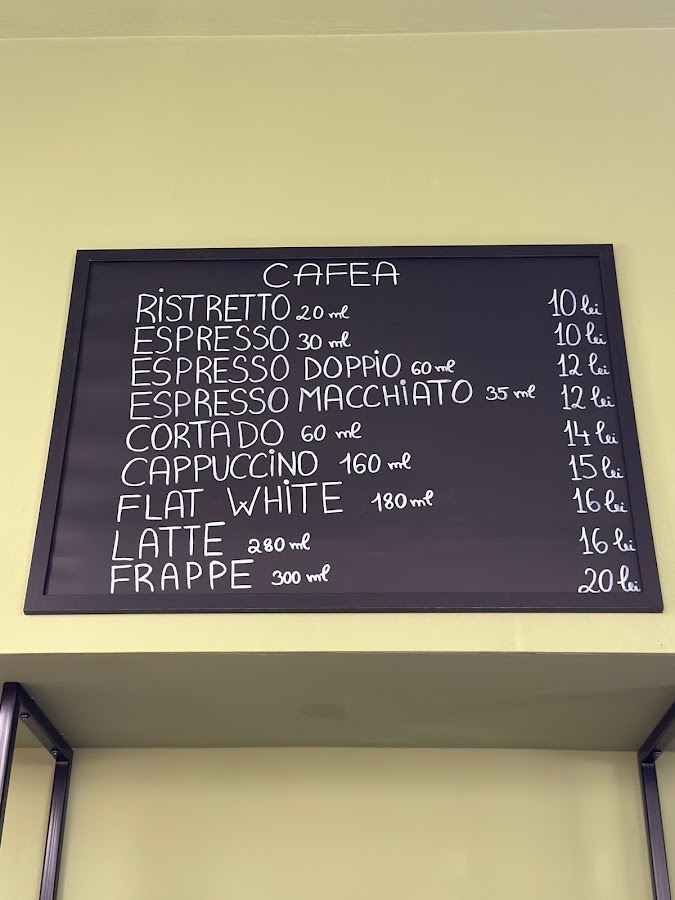 CAFEA
RISTRETTO 20 ml 10 lei
ESPRESSO 30 ml 10 lei
ESPRESSO DOPPIO 60 ml 12 lei
ESPRESSO MACCHIATO 35 ml 12 lei
CORTADO 60 ml 14 lei
CAPPUCCINO 160 ml 15 lei
FLAT WHITE 180 ml 16 lei
LATTE 280 ml 16 lei
FRAPPE 300 ml 20 lei